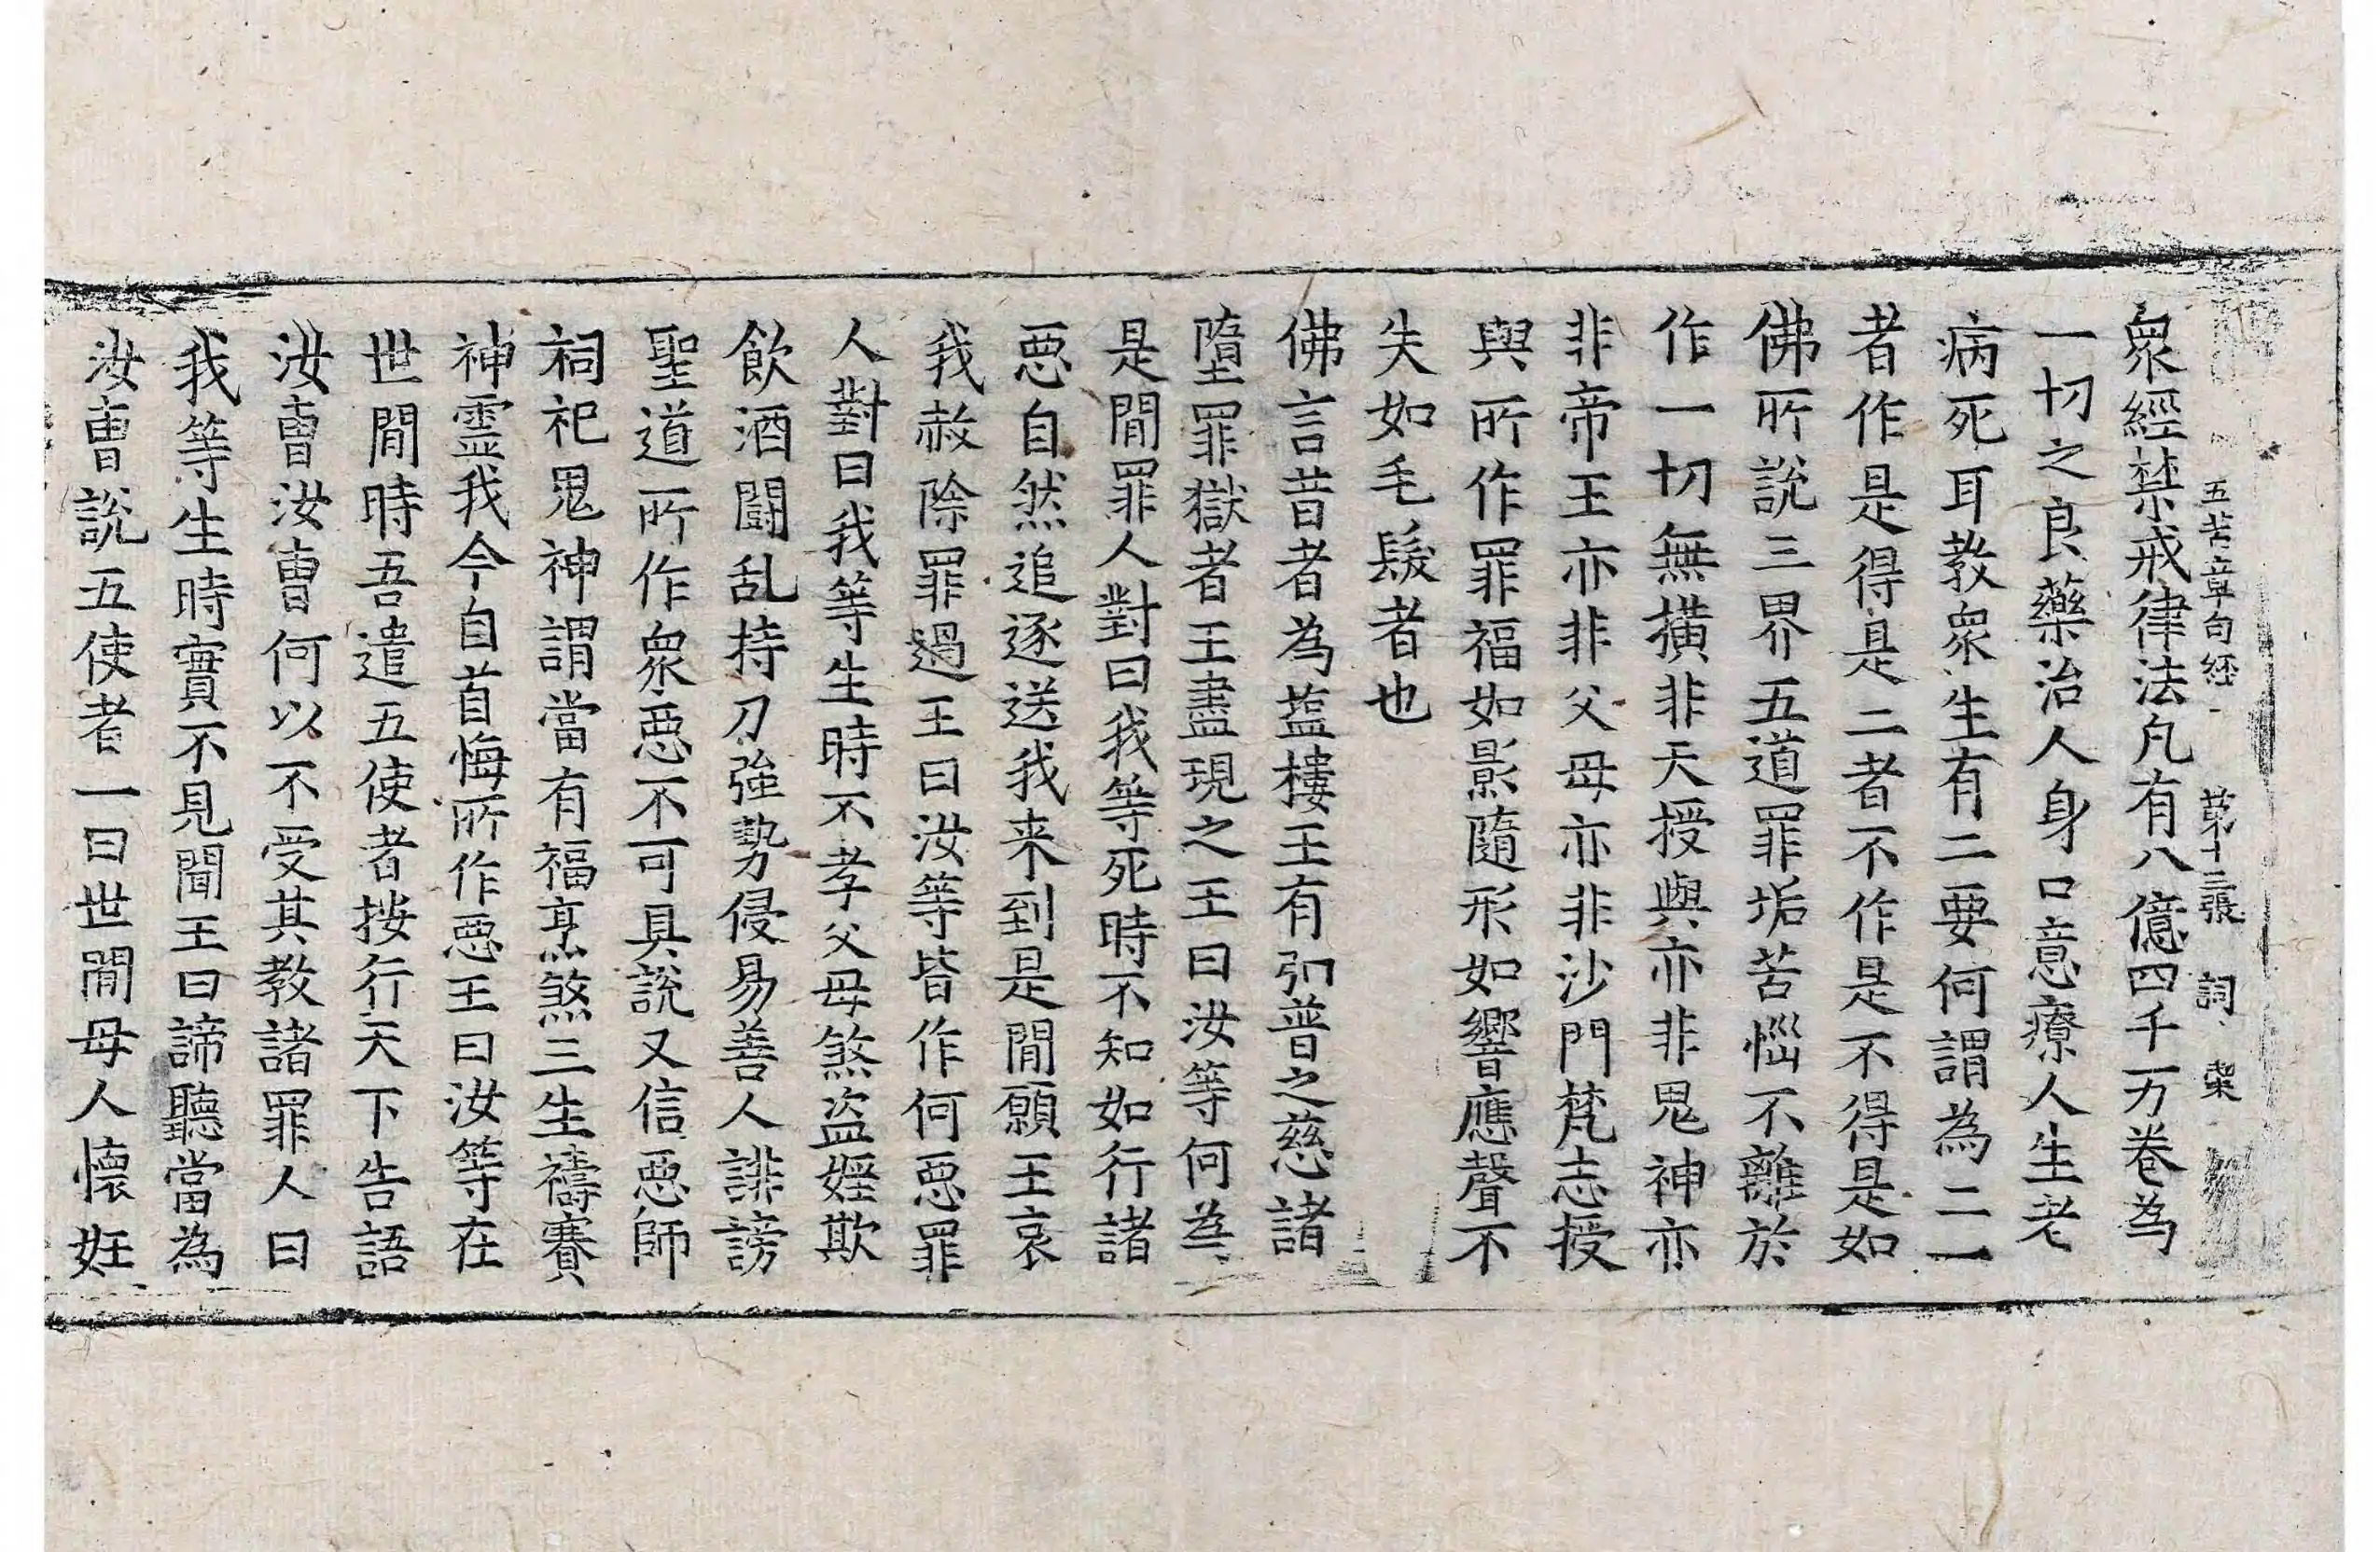 五苦章句経 第十三張 詞
衆經禁戒律法凡有八億四千万卷為
一切之良藥治人身口意療人生老
病死耳教衆生有二要何謂為二一
者作是得是二者不作是不得是如
佛所說三界五道罪垢苦惱不離於
作一切無撗非天授與亦非鬼神亦
非帝王亦非父母亦非沙門梵志授
與所作罪福如影隨形如響應聲不
失如毛髮者也
佛言昔者為藍樓王有弘普之慈諸
墮罪獄者王盡現之王曰汝等何為
是閒罪人對曰我等死時不知如行諸
惡自然追逐送我来到是閒願王哀
我赦除罪過王曰汝等皆作何惡罪
人對曰我等生時不孝父母煞盜婬欺
飲酒鬪乱持刀強勢侵易善人誹謗
聖道所作衆惡不可具說又信惡師
祠祀鬼神謂當有福烹煞三生禱賽
神靈我今自首悔所作惡王曰汝等在
世閒時吾遣五使者按行天下告語
汝曺汝曺何以不受其教諸罪人曰
我等生時實不見聞王曰諦聽當為
汝曺說五使者一曰世閒母人懷妊